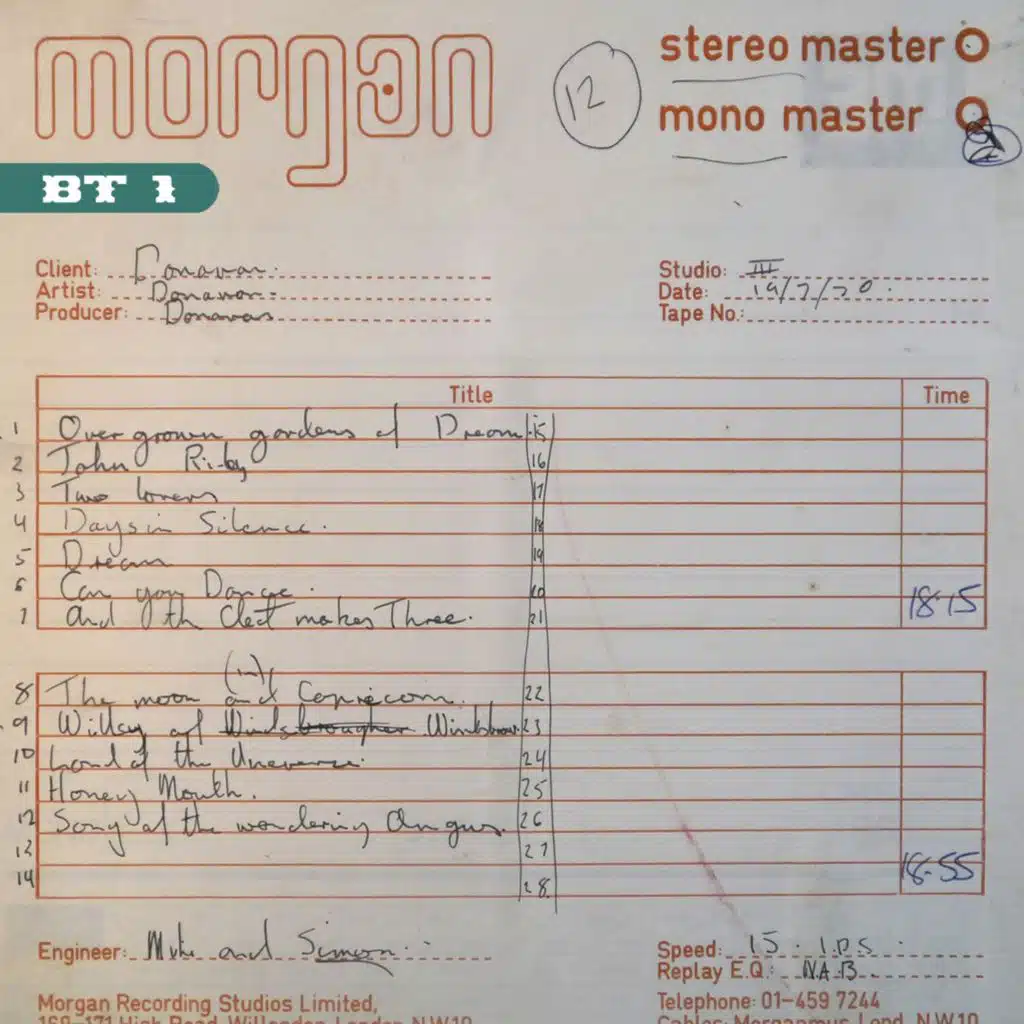 morgan
stereo master
12
mono master
BT 1
Client: Donavan.
Studio: III
Artist: Donavan.
Date: 19/7/70.
Producer: Donavan
Tape No.:
Title Time
1 Over grown gardens of Dream 15
2 John Riley 16
3 Two lovers 17
4 Days in Silence. 18
5 Dream 19
6 Can you Dance. 20
7 And the Cleft makes Three. 21 18-15
(in)
8 The moon and Capricorn. 22
9 of Winds 23
10 of the Universe. 24
11 Honey Mouth. 25
12 Song of the wondering Angus. 26
13 27
14 28. 18-55
Engineer: Mike and Simon
Speed: 15 I.P.S.
Replay E.Q.: N.A.B.
Morgan Recording Studios Limited,
Telephone: 01-459 7244
169-171 High Road, Willesden, London, N.W.10
Cables: Morganmus, Lond, N.W.10